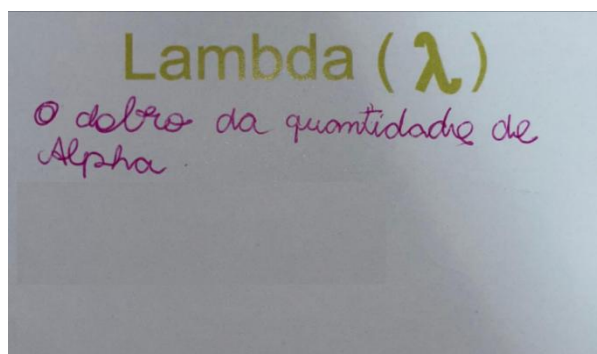 Lambda (λ)
O dobro da quantidade de
Alpha